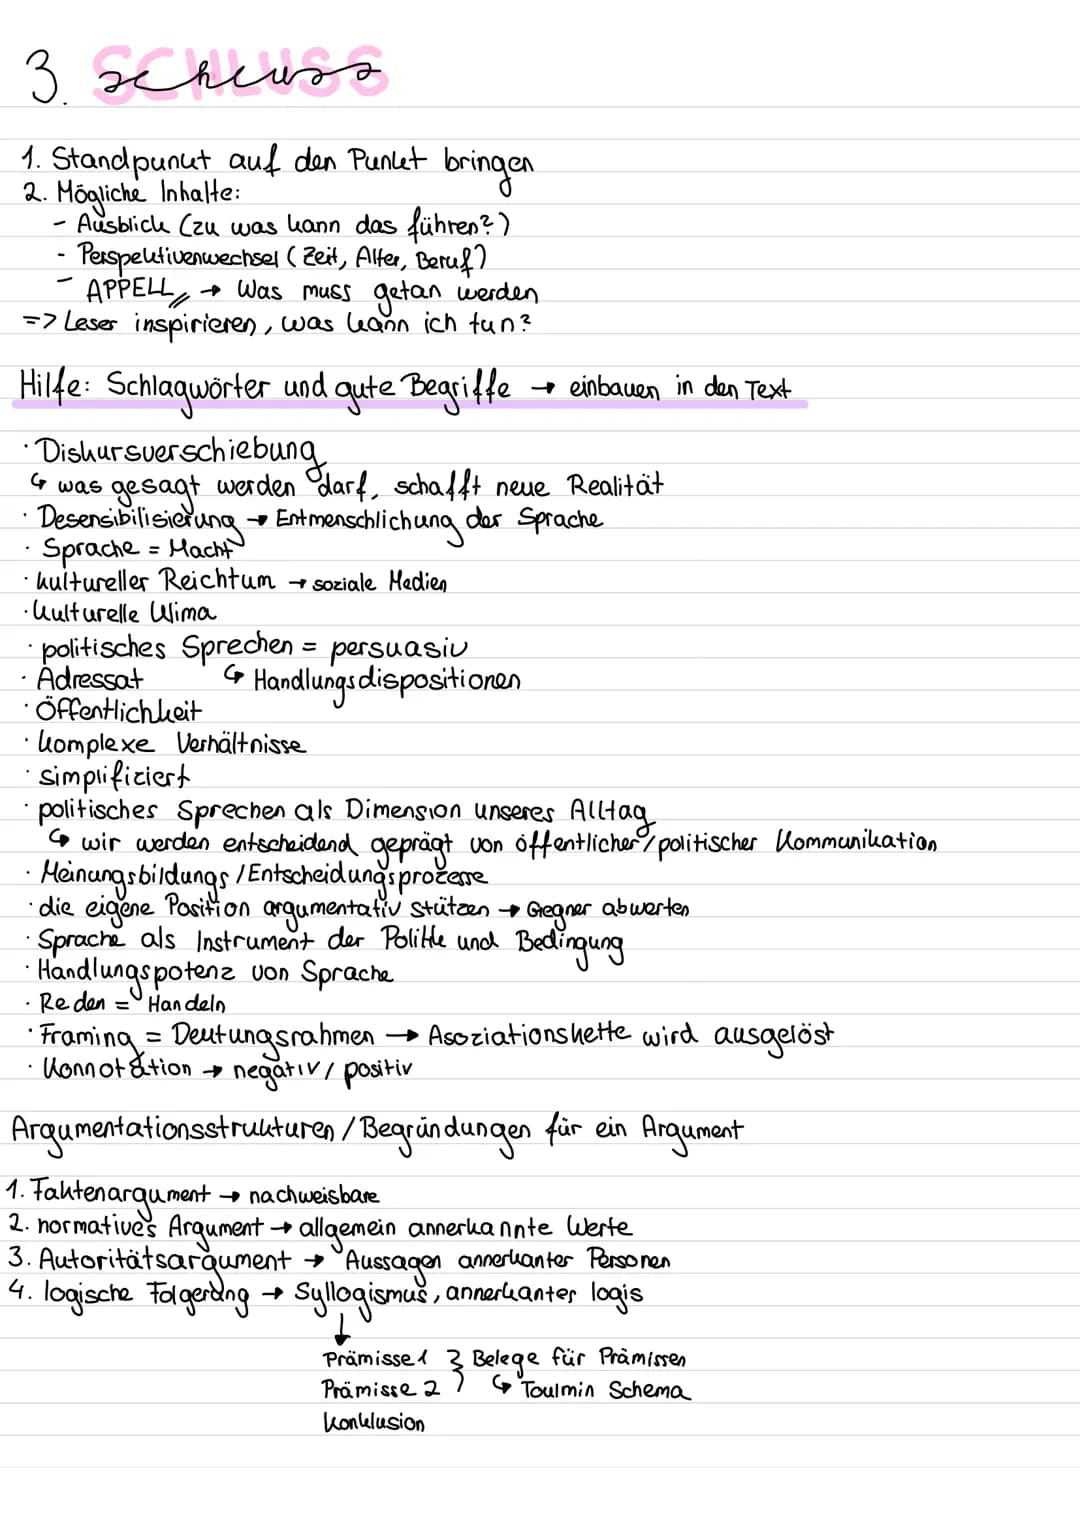 3. SCHLUSS
schluss
1. Standpunkt auf den Punkt bringen
2. Mögliche Inhalte:
- Ausblick (zu was kann das führen?)
- Perspektivenwechsel (Zeit, Alter, Beruf)
- APPELL → Was muss getan werden
=> Leser inspirieren, was kann ich tun?
Hilfe: Schlagwörter und gute Begriffe → einbauen in den Text
· Diskursverschiebung
↳ was gesagt werden darf, schafft neue Realität
· Desensibilisierung → Entmenschlichung der Sprache
· Sprache = Macht
· kultureller Reichtum → soziale Medien
· kulturelle Klima
· politisches Sprechen = persuasiv
· Adressat ↳ Handlungsdispositionen
· Öffentlichkeit
· komplexe Verhältnisse
· simplifiziert
· politisches Sprechen als Dimension unseres Alltag
↳ wir werden entscheidend geprägt von öffentlicher/politischer Kommunikation
· Meinungsbildungs/Entscheidungsprozesse
· die eigene Position argumentativ stützen → Gegner abwerten
· Sprache als Instrument der Politk und Bedingung
· Handlungspotenz von Sprache
· Reden = Handeln
· Framing = Deutungsrahmen → Asoziationskette wird ausgelöst
· Konnotation → negativ/ positiv
Argumentationsstrukturen/Begründungen für ein Argument
1. Faktenargument → nachweisbare
2. normatives Argument → allgemein annerkannte Werte
3. Autoritätsargument → Aussagen annerkanter Personen
4. logische Folgerung → Syllogismus, annerkanter logis
↓
Prämisse 1 } Belege für Prämissen
Prämisse 2 ↳ Toulmin Schema
Konklusion